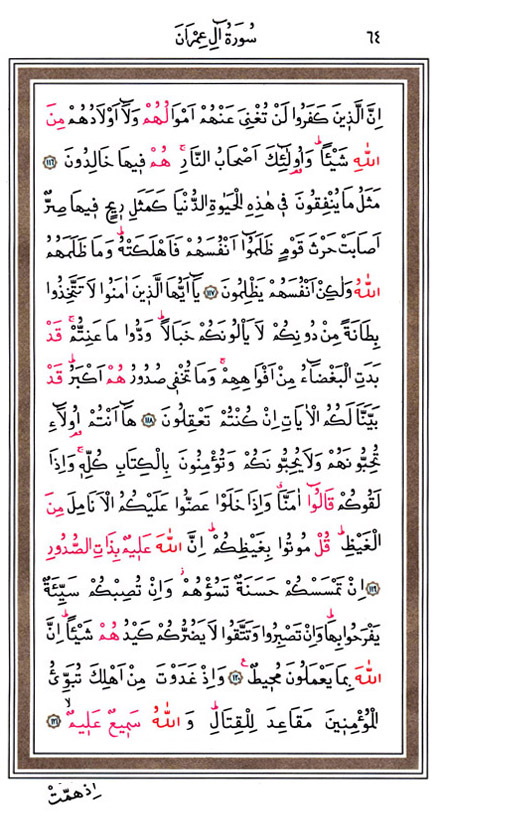 ٦٤ سُورَةُ اٰلِ عِمْرَانَ
اِنَّ الَّذ۪ينَ كَفَرُوا لَنْ تُغْنِيَ عَنْهُمْ اَمْوَالُهُمْ وَلَٓا اَوْلَادُهُمْ مِنَ
اللّٰهِ شَيْـًٔاۜ وَاُو۬لٰٓئِكَ اَصْحَابُ النَّارِۚ هُمْ ف۪يهَا خَالِدُونَ ﴿١١٦﴾
مَثَلُ مَا يُنْفِقُونَ ف۪ي هٰذِهِ الْحَيٰوةِ الدُّنْيَا كَمَثَلِ ر۪يحٍ ف۪يهَا صِرٌّ
اَصَابَتْ حَرْثَ قَوْمٍ ظَلَمُٓوا اَنْفُسَهُمْ فَاَهْلَكَتْهُۜ وَمَا ظَلَمَهُمُ
اللّٰهُ وَلٰكِنْ اَنْفُسَهُمْ يَظْلِمُونَ ﴿١١٧﴾ يَٓا اَيُّهَا الَّذ۪ينَ اٰمَنُوا لَا تَتَّخِذُوا
بِطَانَةً مِنْ دُونِكُمْ لَا يَأْلُونَكُمْ خَبَالًاۜ وَدُّوا مَا عَنِتُّمْۚ قَدْ
بَدَتِ الْبَغْضَٓاءُ مِنْ اَفْوَاهِهِمْۚ وَمَا تُخْف۪ي صُدُورُهُمْ اَكْبَرُۜ قَدْ
بَيَّنَّا لَكُمُ الْاٰيَاتِ اِنْ كُنْتُمْ تَعْقِلُونَ ﴿١١٨﴾ هَٓا اَنْتُمْ اُو۬لَٓاءِ
تُحِبُّونَهُمْ وَلَا يُحِبُّونَكُمْ وَتُؤْمِنُونَ بِالْكِتَابِ كُلِّه۪ۚ وَاِذَا
لَقُوكُمْ قَالُٓوا اٰمَنَّاۗ وَاِذَا خَلَوْا عَضُّوا عَلَيْكُمُ الْاَنَامِلَ مِنَ
الْغَيْظِۜ قُلْ مُوتُوا بِغَيْظِكُمْۜ اِنَّ اللّٰهَ عَل۪يمٌ بِذَاتِ الصُّدُورِ
﴿١١٩﴾ اِنْ تَمْسَسْكُمْ حَسَنَةٌ تَسُؤْهُمْۘ وَاِنْ تُصِبْكُمْ سَيِّئَةٌ
يَفْرَحُوا بِهَاۜ وَاِنْ تَصْبِرُوا وَتَتَّقُوا لَا يَضُرُّكُمْ كَيْدُهُمْ شَيْـًٔاۜ اِنَّ
اللّٰهَ بِمَا يَعْمَلُونَ مُح۪يطٌ۟ ﴿١٢٠﴾ وَاِذْ غَدَوْتَ مِنْ اَهْلِكَ تُبَوِّئُ
الْمُؤْمِن۪ينَ مَقَاعِدَ لِلْقِتَالِۜ وَاللّٰهُ سَم۪يعٌ عَل۪يمٌۙ ﴿١٢١﴾
اِذْ هَمَّتْ